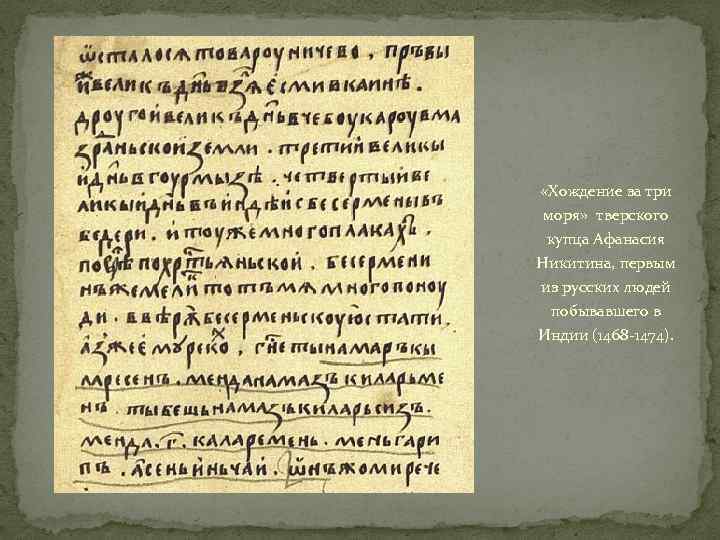 ѿсталосѧ товароу ничево , пръвы
и҆ велик ъдн҃ь взѧ єсми вкаинѣ .
дроугои велик ъдн҃ь вчебоукароу вма
здраньскои земли . третии великы
и҆дн҃ь вгоурмызѣ . четвертыи ве
ликыи дн҃ь въиндѣи сбесермены въ
бедери . и҆ тоу же много плакахъ
по вѣрѣ по хрт҃ьꙗньскои . бесермени
нъ же меликтъ тотъ мѧ много поноу
ди . ввѣрѫ бесерменьскоую стати
азъ же є҆мꙋ реко ,
мрсенъ . менда намазъ киларьме
нъ . ты бешь намазъ киларьсизъ .
менда . г҃ . каларемень . мень гари
пъ . асень иньчаи . ѡ҆нъ же ми рече
«Хождение за три
моря» тверского
купца Афанасия
Никитина, первым
из русских людей
побывавшего в
Индии (1468-1474).